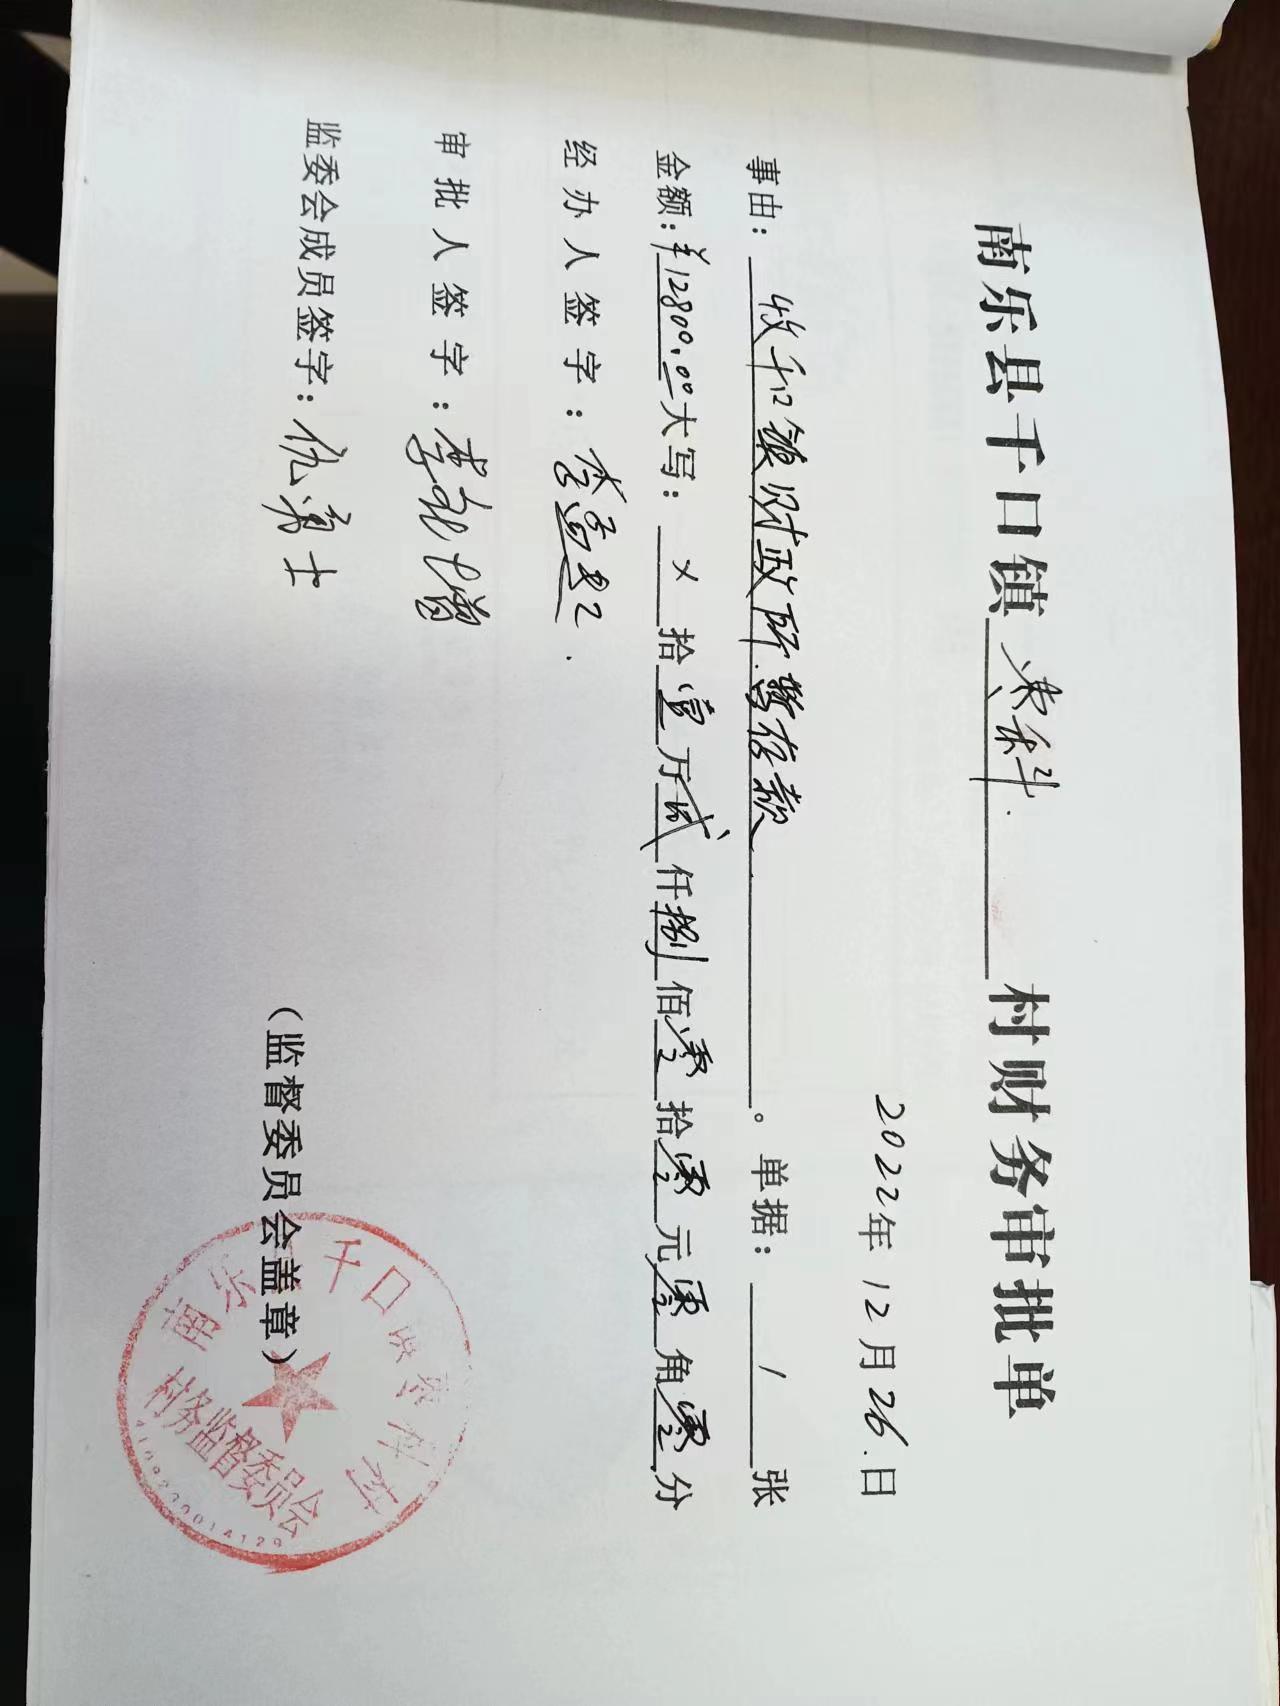 南乐县千口镇 村财务审批单
2022年12月26.日
事由：收千口镇财政所暂存款。单据：1张
金额：¥12800.00大写：×拾壹万贰仟捌佰零拾零元零角零分
经办人签字：李
审批人签字：李
监委会成员签字：仇勇士
（监督委员会盖章）
南乐 千口 村
村务监督委员会